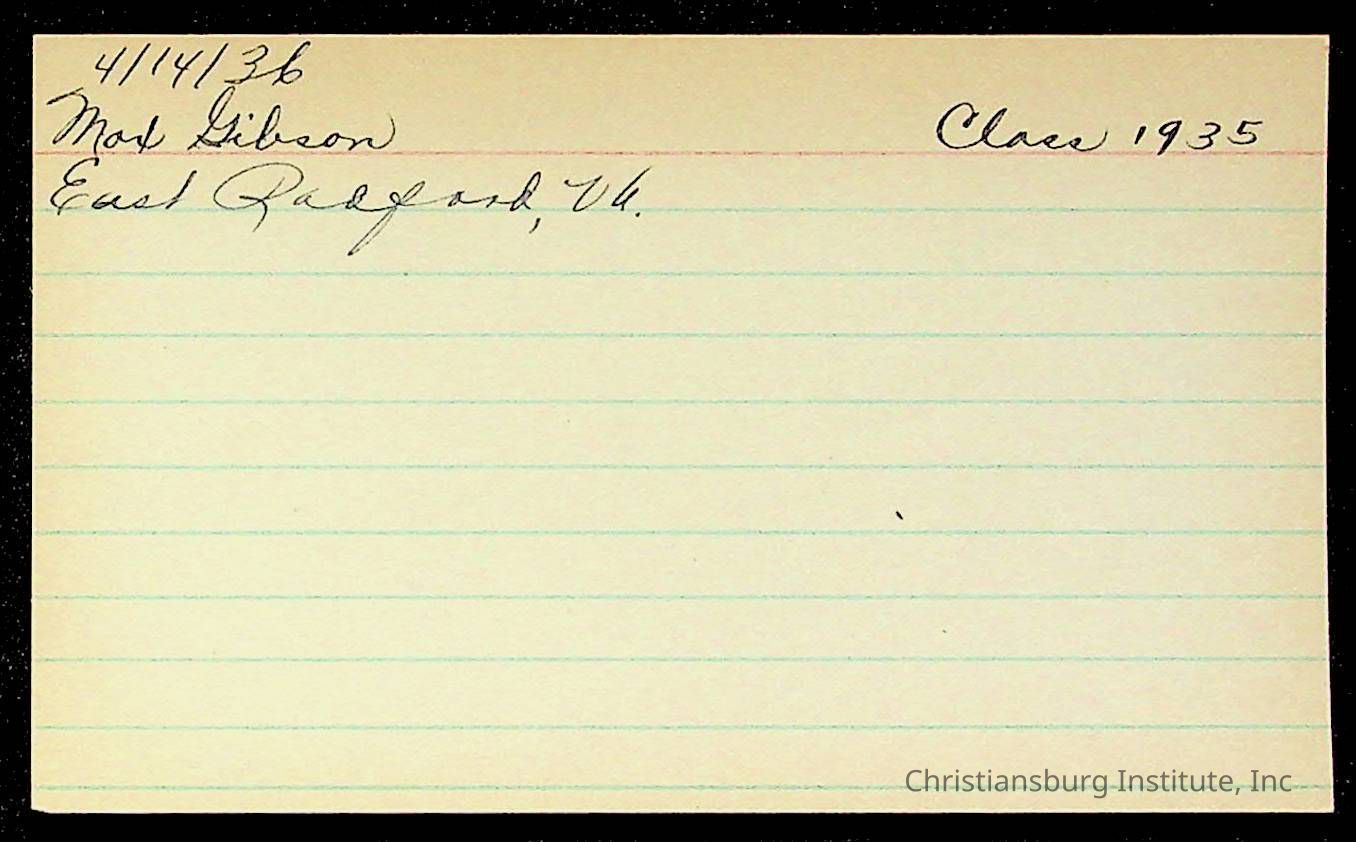 4/14/36
Max Gibson Class 1935
East Radford, Va.
Christiansburg Institute, Inc